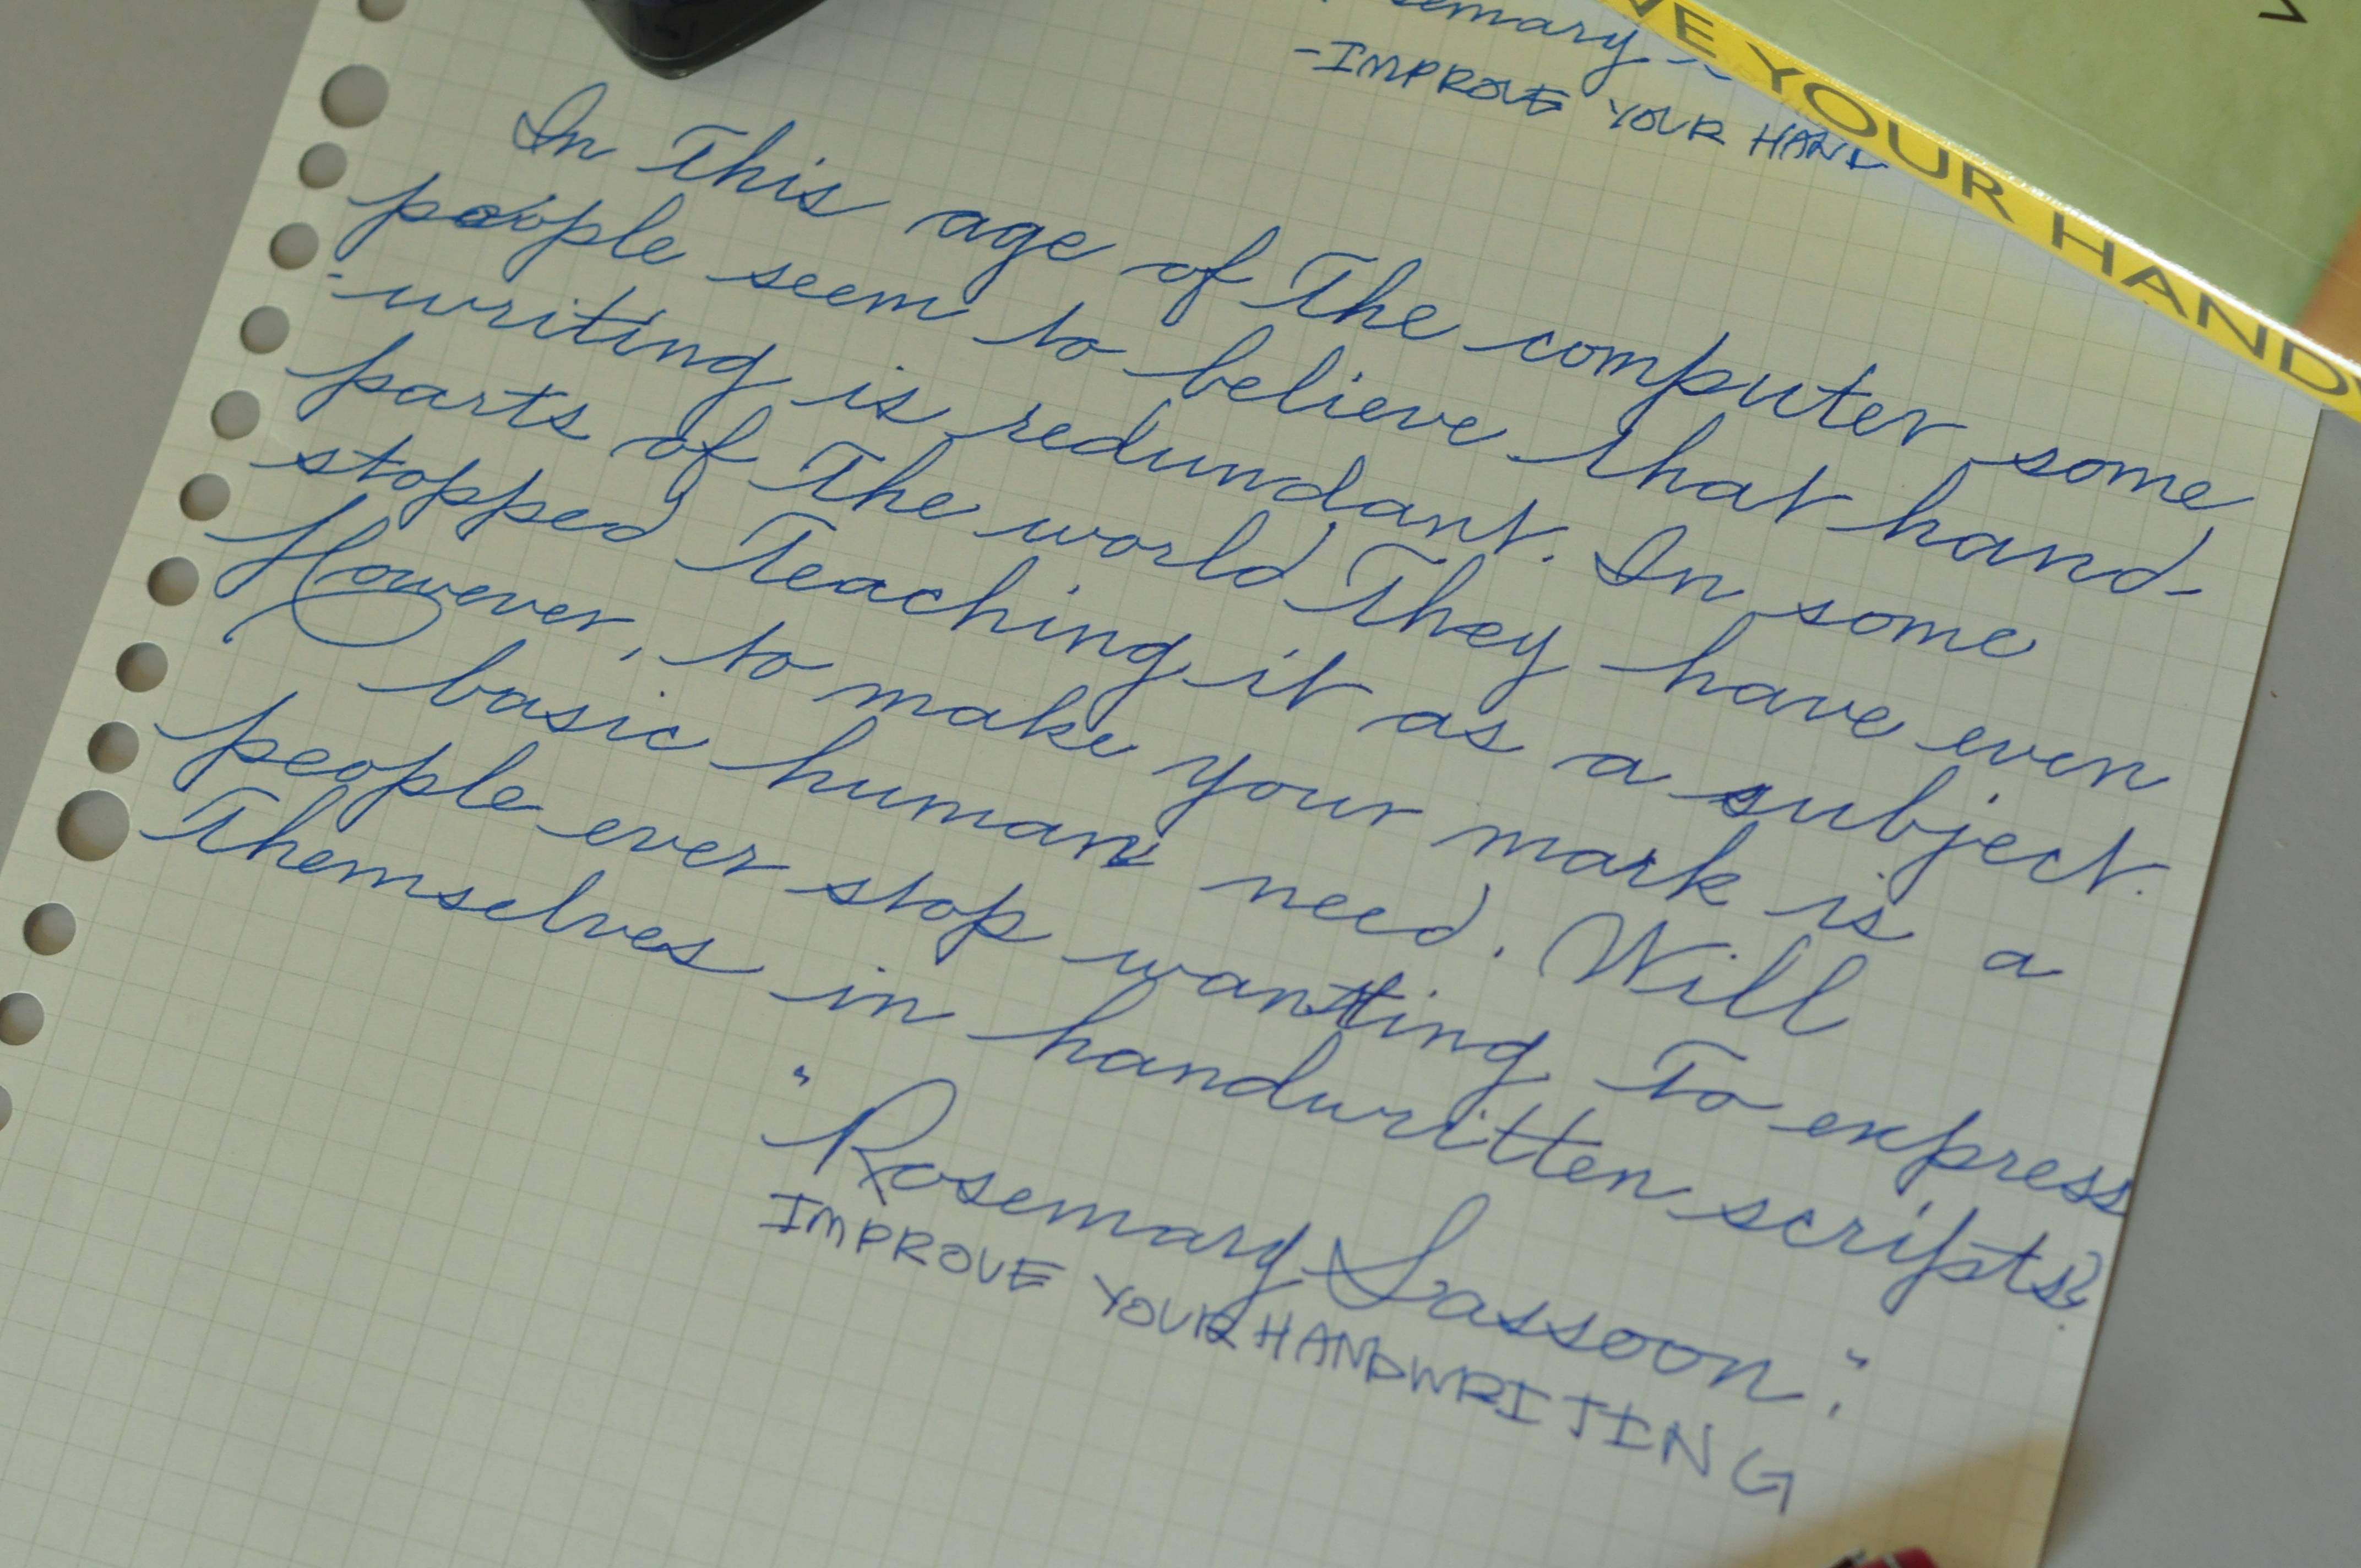 -IMPROVE YOUR HAND
VE YOUR HANDW
In This age of The computer some
people seem to believe that hand-
-writing is redundant. In some
parts of The world They have even
stopped Teaching it as a subject.
However, to make your mark is a
basic human need. Will
people ever stop wanting To express
Themselves in handwritten scripts?
"Rosemary Sassoon."
IMPROVE YOUR HANDWRITING